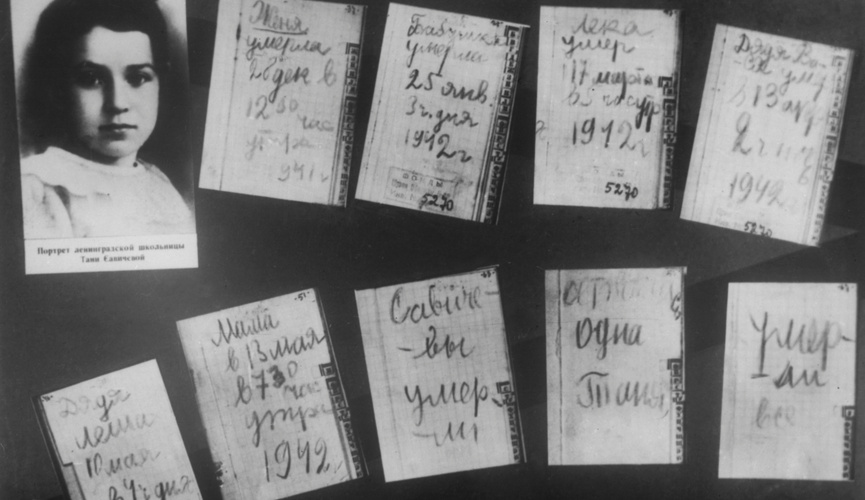 Портрет ленинградской школьницы
Тани Савичевой
Женя
умерла
28 дек в
12 30
час
утра
1941 г
Бабушка
умерла
25 янв.
3 ч. дня
1942 г.
5270
Лека
умер
17 марта
в 5 час ут
1942 г
5270
Дядя Ва-
ся ум
в 13 апр
2 ч ноч
1942
5270
Дядя
Леша
10 мая
в 4 ч дня
Мама
в 13 мая
в 7 30
час
утра
1942
Савиче-
-вы
умер
-ли
одна
Таня
умер-
-ли
все